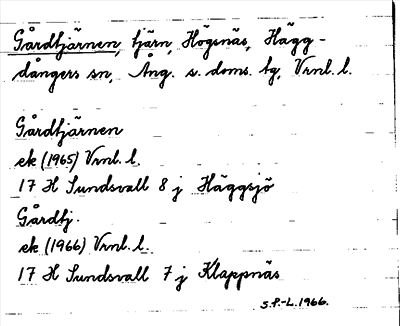 Gårdtjärnen, tjärn, Högsnäs, Hägg-
dångers sn, Ång. s. doms. tg, Vrnl. l.
Gårdtjärnen
ek (1965) Vrnl. l.
17 H Sundsvall 8 j Häggsjö
Gårdtj.
ek (1966) Vrnl. l.
17 H Sundsvall 7 j Klappnäs
S.P.-L. 1966.